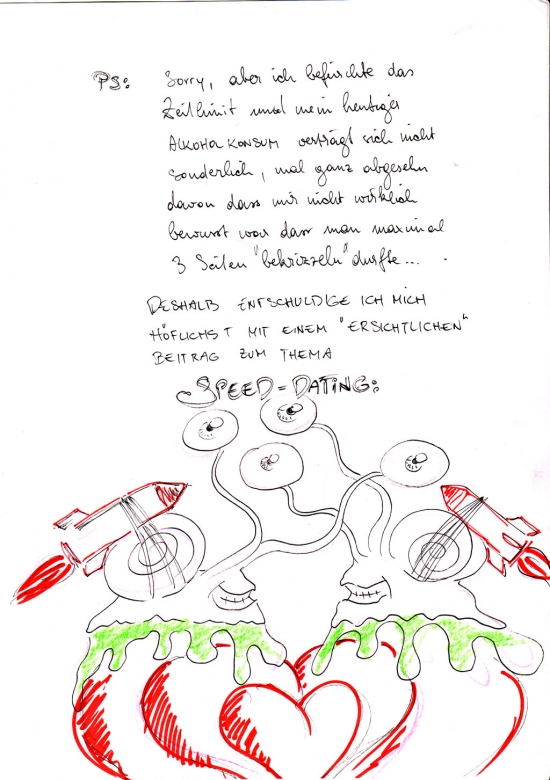 PS: Sorry, aber ich befürchte das
Zeitlimit und mein heutiger
ALKOHOLKONSUM verträgt sich nicht
sonderlich, mal ganz abgesehn
davon dass mir nicht wirklich
bewusst war dass man maximal
3 Seiten "bekrizzeln" durfte...
DESHALB ENTSCHULDIGE ICH MICH
HÖFLICHST MIT EINEM "ERSICHTLICHEN"
BEITRAG ZUM THEMA
SPEED-DATING: